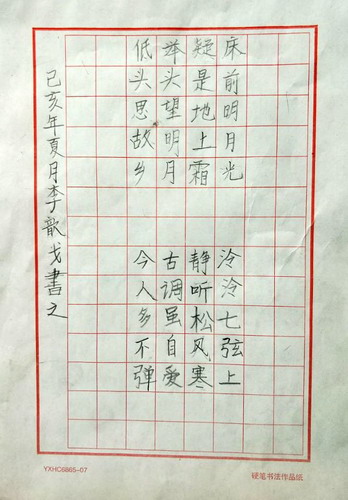 床前明月光
疑是地上霜
举头望明月
低头思故乡
泠泠七弦上
静听松风寒
古调虽自爱
今人多不弹
己亥年夏月李歆戈書之
YXHC6865-07
硬笔书法作品纸